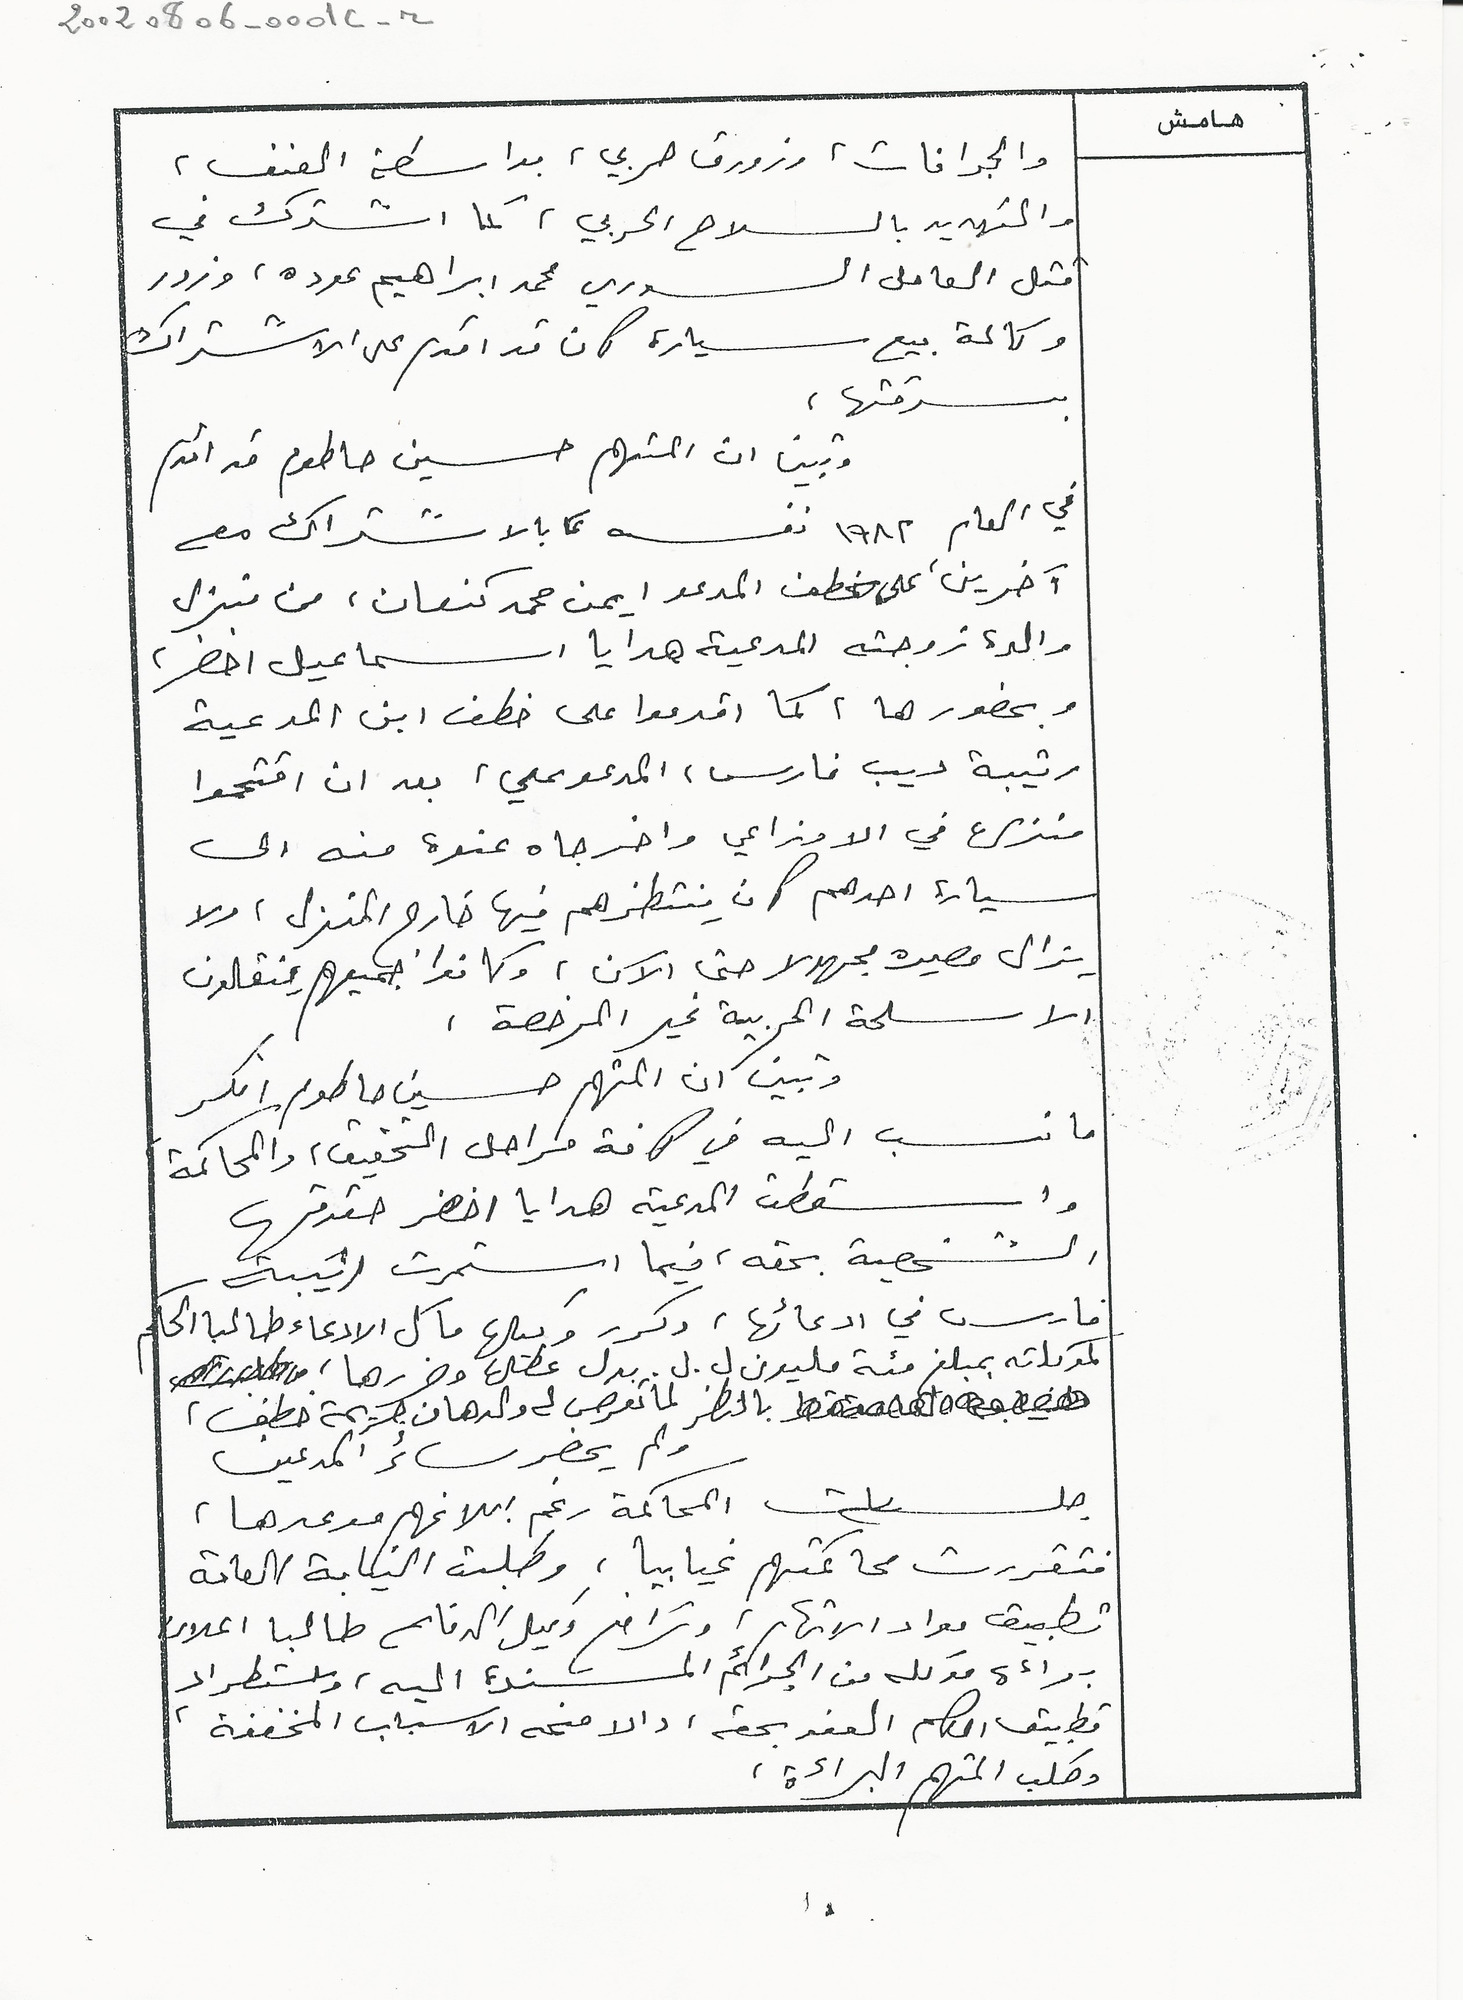 20020806-000dc-r
هامش
والجرافات، وزورق حربي، بواسطة العنف،
والتهديد بالسلاح الحربي، كما اشترك في
قتل العامل السوري محمد ابراهيم عوده، وزور
وكالة بيع سيارة كان قد اقدم على الاشتراك
بسرقتها،
وتبين ان المتهم حسين حاطوم قد اقدم
في العام ١٩٨٢ نفسه بالاشتراك مع
آخرين، على خطف المدعو ايمن محمد كنعان، من منزل
والدة زوجته المدعية هدايا اسماعيل اخضر،
وبحضورها، كما اقدموا على خطف ابن المدعية
رتيبة ديب فارس، المدعو علي، بعد ان اقتحموا
منزله في الاوزاعي واخرجاه عنوة منه الى
سيارة احدهم كان ينتظرهم فيها خارج المنزل، ولا
يزال مصيره مجهولا حتى الآن، وكانوا جميعهم ينقلون
الاسلحة الحربية غير المرخصة،
وتبين ان المتهم حسين حاطوم انكر
ما نسب اليه في كافة مراحل التحقيق، والمحاكمة
واسقطت المدعية هدايا اخضر حقوقها
الشخصية بحقه، فيما استمرت رتيبة
فارس في ادعائها، وكرر وكيلها مآل الادعاء طالبا الحكم
لموكلته بمبلغ مئة مليون ل.ل. بدل عطلها وضررها،
بالنظر لما تعرض له ولدها من جريمة خطف،
ولم يحضر سائر المدعين
جلسات المحاكمة رغم ابلاغهم موعدها،
فتقررت محاكمتهم غيابيا، وطلبت النيابة العامة
تطبيق مواد الاتهام، وترافع وكيل الدفاع طالبا اعلان
براءة موكله من الجرائم المسندة اليه، واستطرادا
تطبيق احكام العفو بحقه، والا منحه الاسباب المخففة،
وطلب المتهم البراءة،
١٠